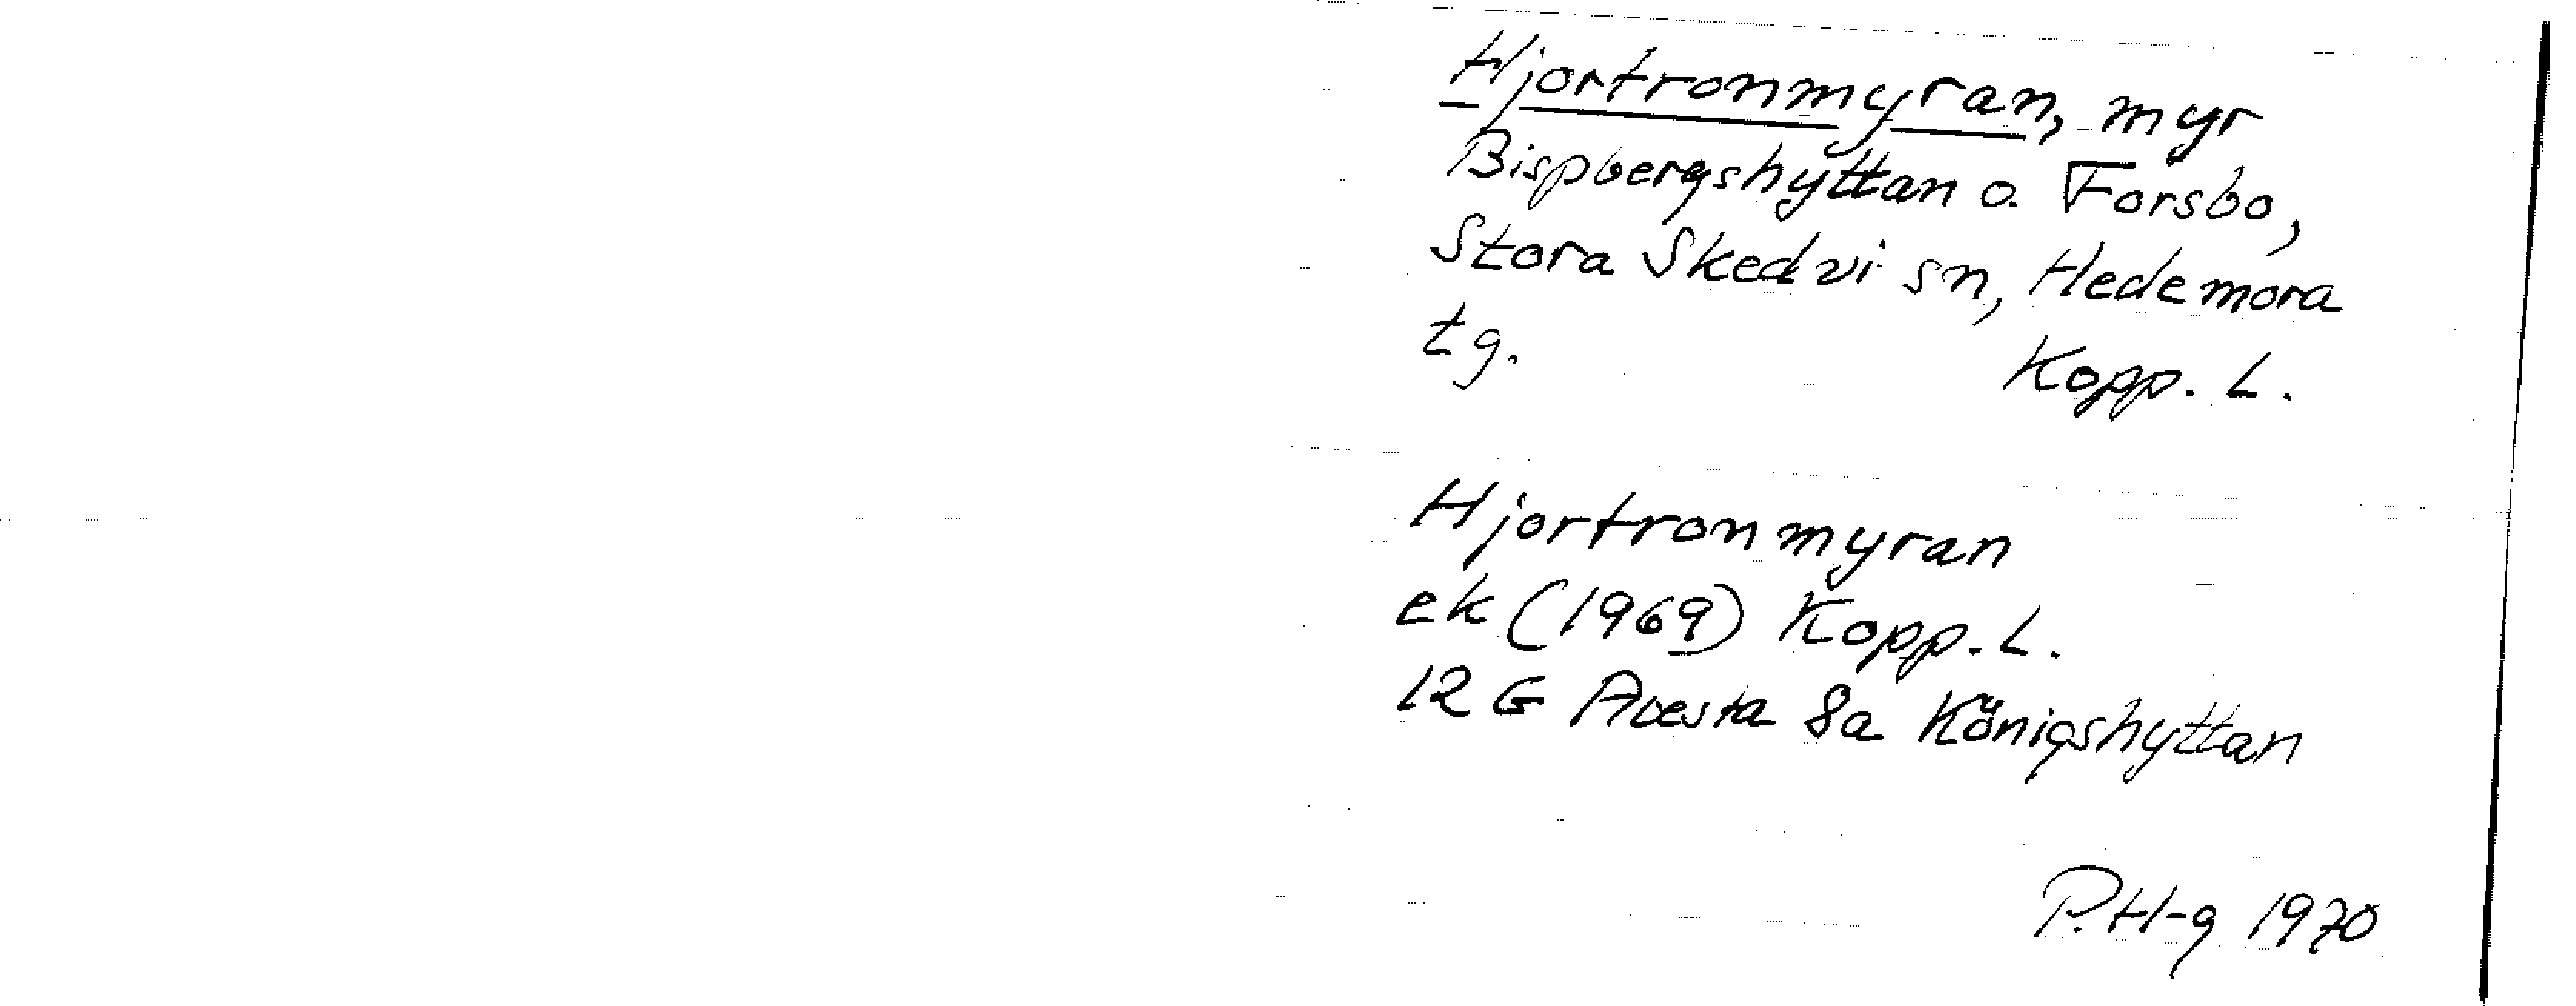 Hjortronmyran, myr
Bispbergshyttan o. Forsbo,
Stora Skedvi sn, Hedemora
tg. Kopp. L.
Hjortronmyran
ek (1969) Kopp. L.
12 G Avesta 8a Königshyttan
P. H-g 1970